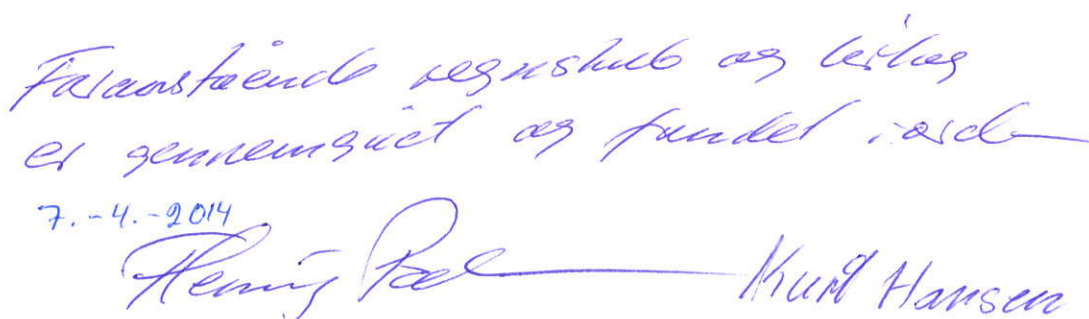 Foranstående regnskab og bilag
er gennemgået og fundet i orden
7.-4.-2014
Henning
Kurt Hansen